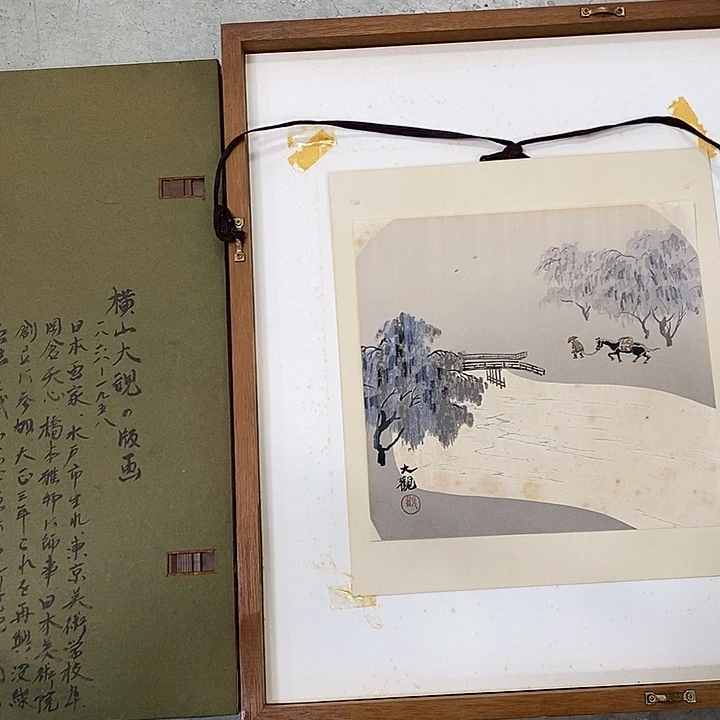 横山大観の版画
一八六八ー一九五八
日本画家、水戸市生れ東京美術学校卆
岡倉天心 橋本雅邦に師事 日本美術院
創立に参加 大正三年これを再興、没線
大観